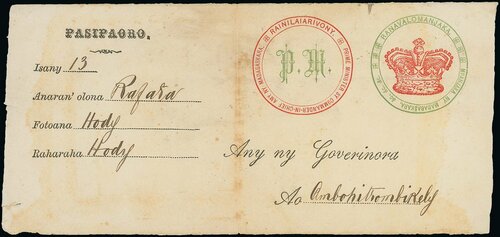 PASIPAORO.
Isany 13
Anaran' olona Rafara
Fotoana Hody
Raharaha Hody
RAINILAIARIVONY, PRIME MINISTER SY COMMANDER-IN-CHIEF AMY NY MADAGASKARA.
P.M.
RANAVALOMANJAKA, MPANJAKA NY MADAGASKARA, &c. &c. &c.
Any ny Goverinora
Ao Ambohitrombikely